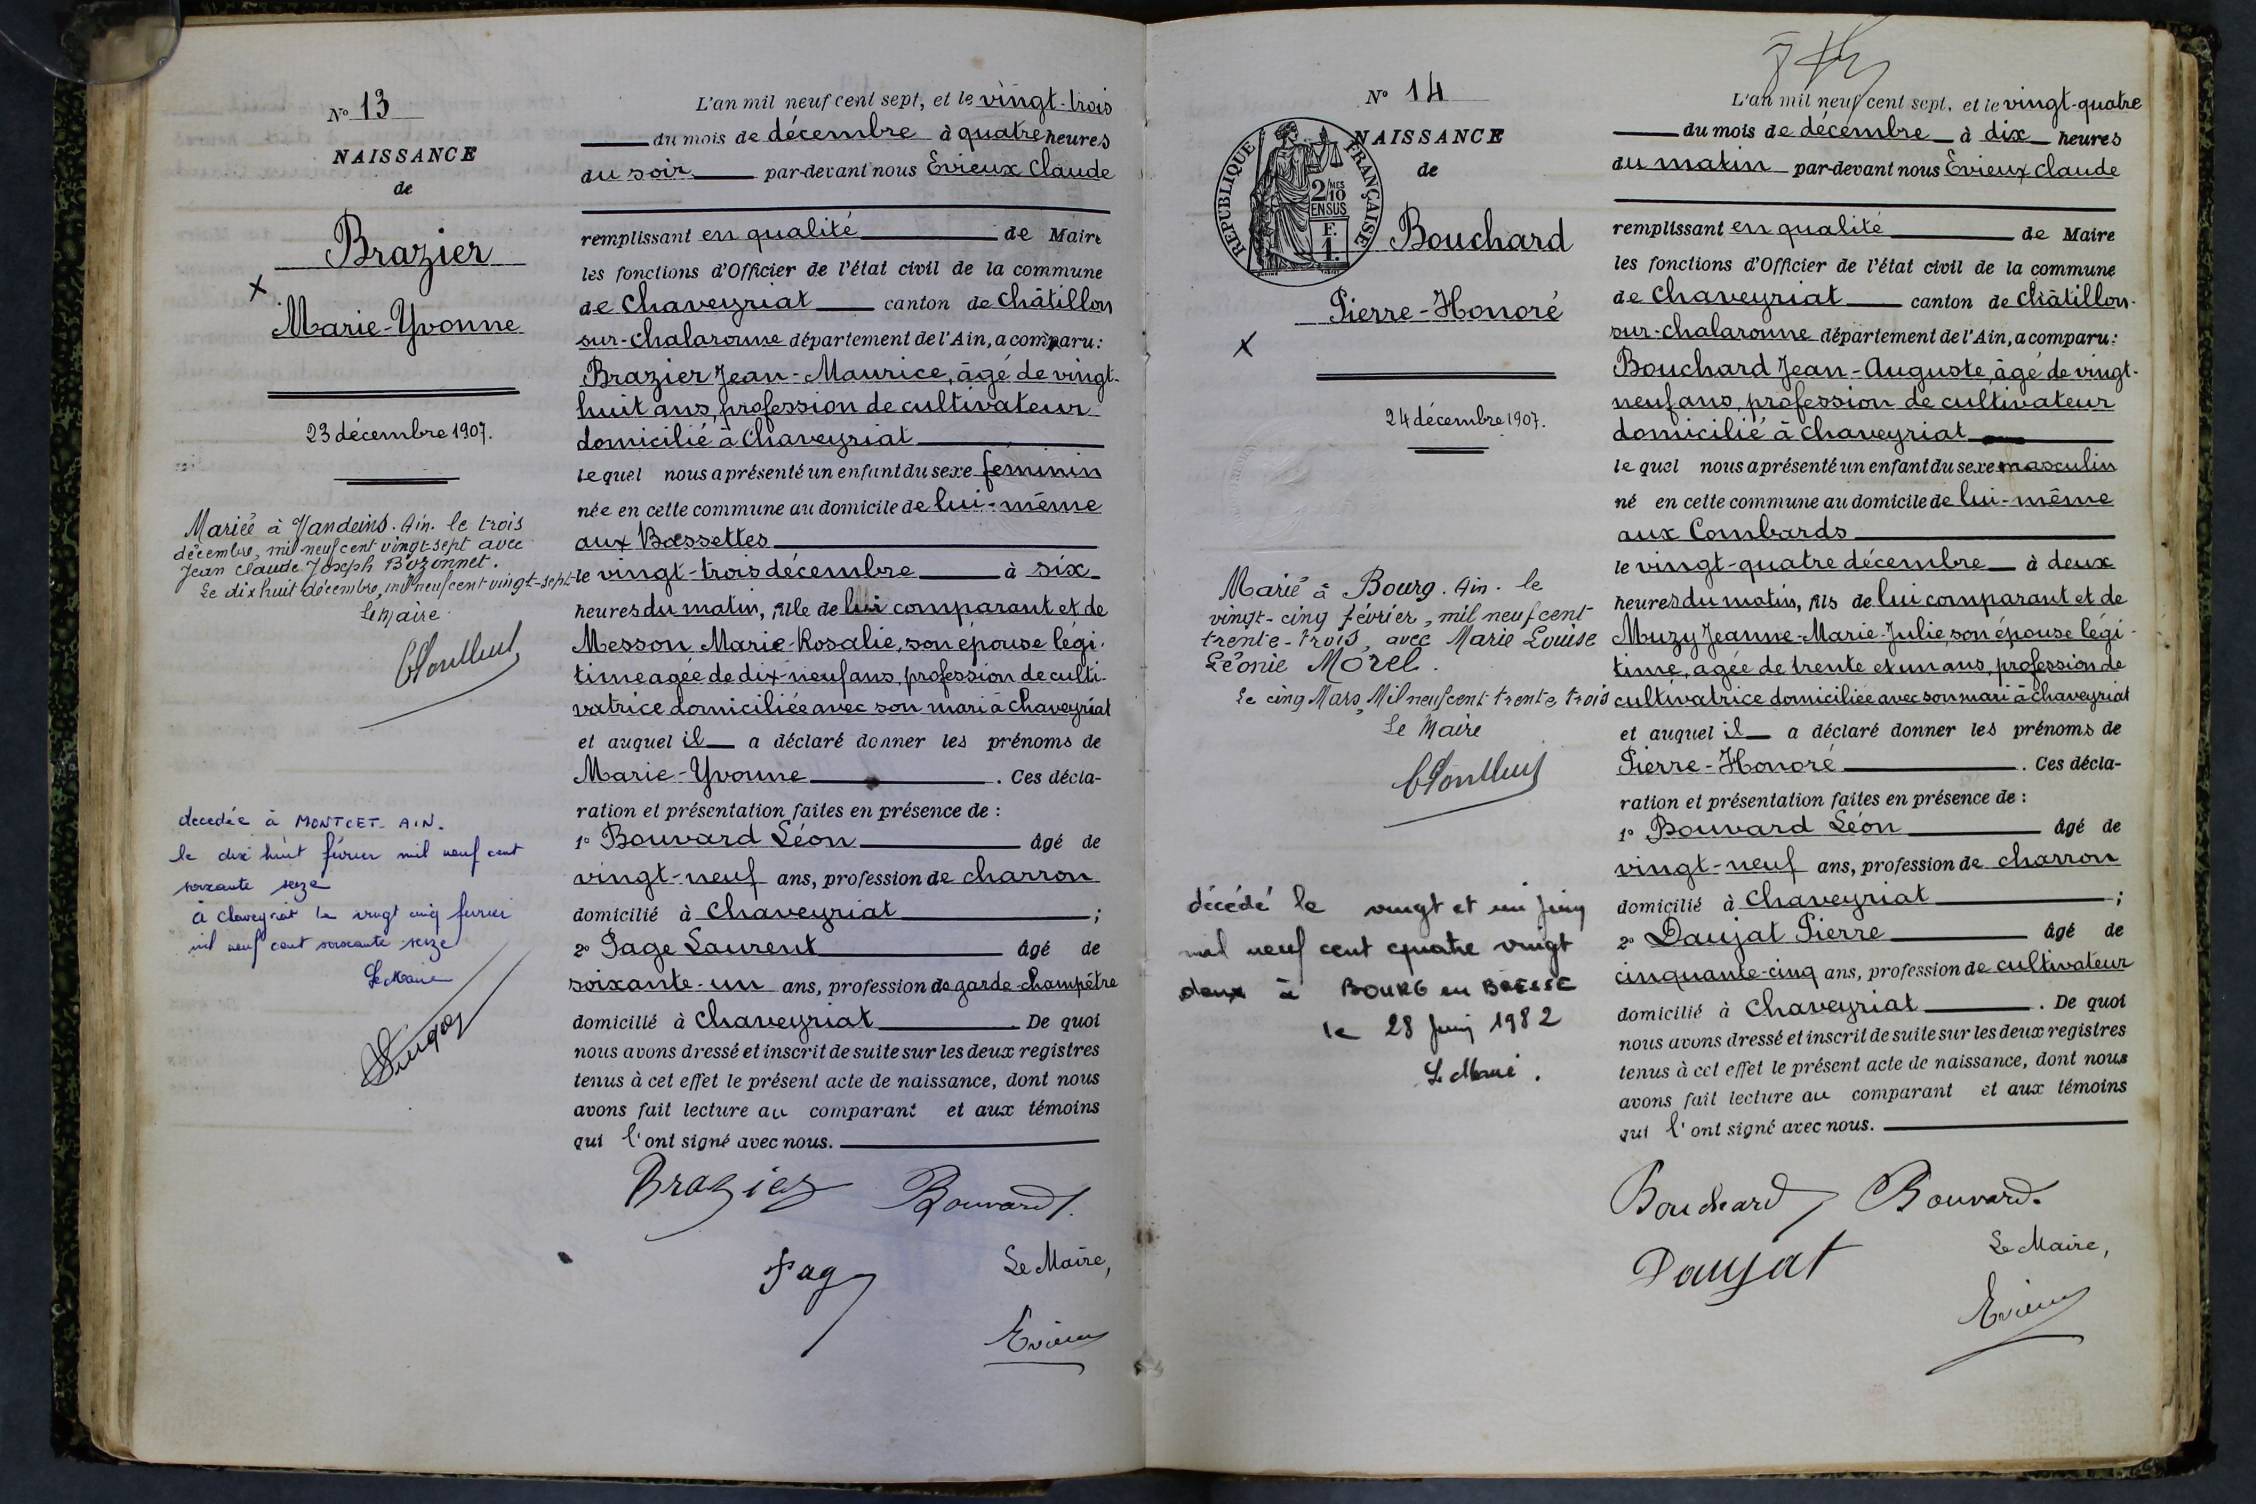 Nº 13
NAISSANCE
de
Brazier
x
Marie-Yvonne
23 décembre 1907.
Mariée à Vandeins. Ain. le trois
décembre, mil neuf cent vingt-sept avec
Jean Claude Joseph Bozonnet.
Le dix huit décembre, mil neuf cent vingt-sept
Le Maire
decedée à MONTCET. AIN.
le dix huit février mil neuf cent
soixante seize
à Chaveyriat le vingt cinq fevrier
mil neuf cent soixante seize
Le Maire
L'an mil neuf cent sept, et le vingt-trois
du mois de décembre à quatre heures
du soir par-devant nous Evieux Claude
remplissant en qualité de Maire
les fonctions d'Officier de l'état civil de la commune
de Chaveyriat canton de Châtillon
sur-Chalaronne département de l'Ain, a comparu:
Brazier Jean-Maurice, âgé de vingt-
huit ans, profession de cultivateur
domicilié à Chaveyriat
lequel nous a présenté un enfant du sexe feminin
née en cette commune au domicile de lui-même
aux Bassettes
le vingt-trois décembre à six
heures du matin, fille de lui comparant et de
Messon Marie-Rosalie, son épouse légi-
time agée de dix-neuf ans, profession de culti-
vatrice domiciliée avec son mari à Chaveyriat
et auquel il a déclaré donner les prénoms de
Marie-Yvonne . Ces décla-
ration et présentation faites en présence de :
1º Bouvard Léon âgé de
vingt-neuf ans, profession de charron
domicilié à Chaveyriat ;
2º Page Laurent âgé de
soixante-un ans, profession de garde-champêtre
domicilié à Chaveyriat . De quoi
nous avons dressé et inscrit de suite sur les deux registres
tenus à cet effet le présent acte de naissance, dont nous
avons fait lecture au comparant et aux témoins
qui l'ont signé avec nous.
Brazier Bouvard L.
Page Le Maire,
Evieux
Nº 14
NAISSANCE
de
RÉPUBLIQUE FRANÇAISE
2/10 MES
EN SUS
F.
1.
Bouchard
Pierre-Honoré
x
24 décembre 1907.
Marié à Bourg. Ain. le
vingt-cinq février, mil neuf cent
trente-trois, avec Marie Louise
Léonie Morel.
Le cinq Mars, Mil neuf cent trente trois
Le Maire
décédé le vingt et un juin
mil neuf cent quatre vingt
deux à BOURG en BRESSE
le 28 Juin 1982
Le Maire.
L'an mil neuf cent sept, et le vingt-quatre
du mois de décembre à dix heures
du matin par-devant nous Evieux Claude
remplissant en qualité de Maire
les fonctions d'Officier de l'état civil de la commune
de Chaveyriat canton de Châtillon-
sur-Chalaronne département de l'Ain, a comparu:
Bouchard Jean-Auguste, âgé de vingt-
neuf ans, profession de cultivateur
domicilié à Chaveyriat
lequel nous a présenté un enfant du sexe masculin
né en cette commune au domicile de lui-même
aux Combards
le vingt-quatre décembre à deux
heures du matin, fils de lui comparant et de
Muzy Jeanne-Marie-Julie, son épouse légi-
time, agée de trente et un ans, profession de
cultivatrice domiciliée avec son mari à Chaveyriat
et auquel il a déclaré donner les prénoms de
Pierre-Honoré . Ces décla-
ration et présentation faites en présence de :
1º Bouvard Léon âgé de
vingt-neuf ans, profession de charron
domicilié à Chaveyriat ;
2º Daujat Pierre âgé de
cinquante-cinq ans, profession de cultivateur
domicilié à Chaveyriat . De quoi
nous avons dressé et inscrit de suite sur les deux registres
tenus à cet effet le présent acte de naissance, dont nous
avons fait lecture au comparant et aux témoins
qui l'ont signé avec nous.
Bouchard Bouvard.
Daujat Le Maire,
Evieux